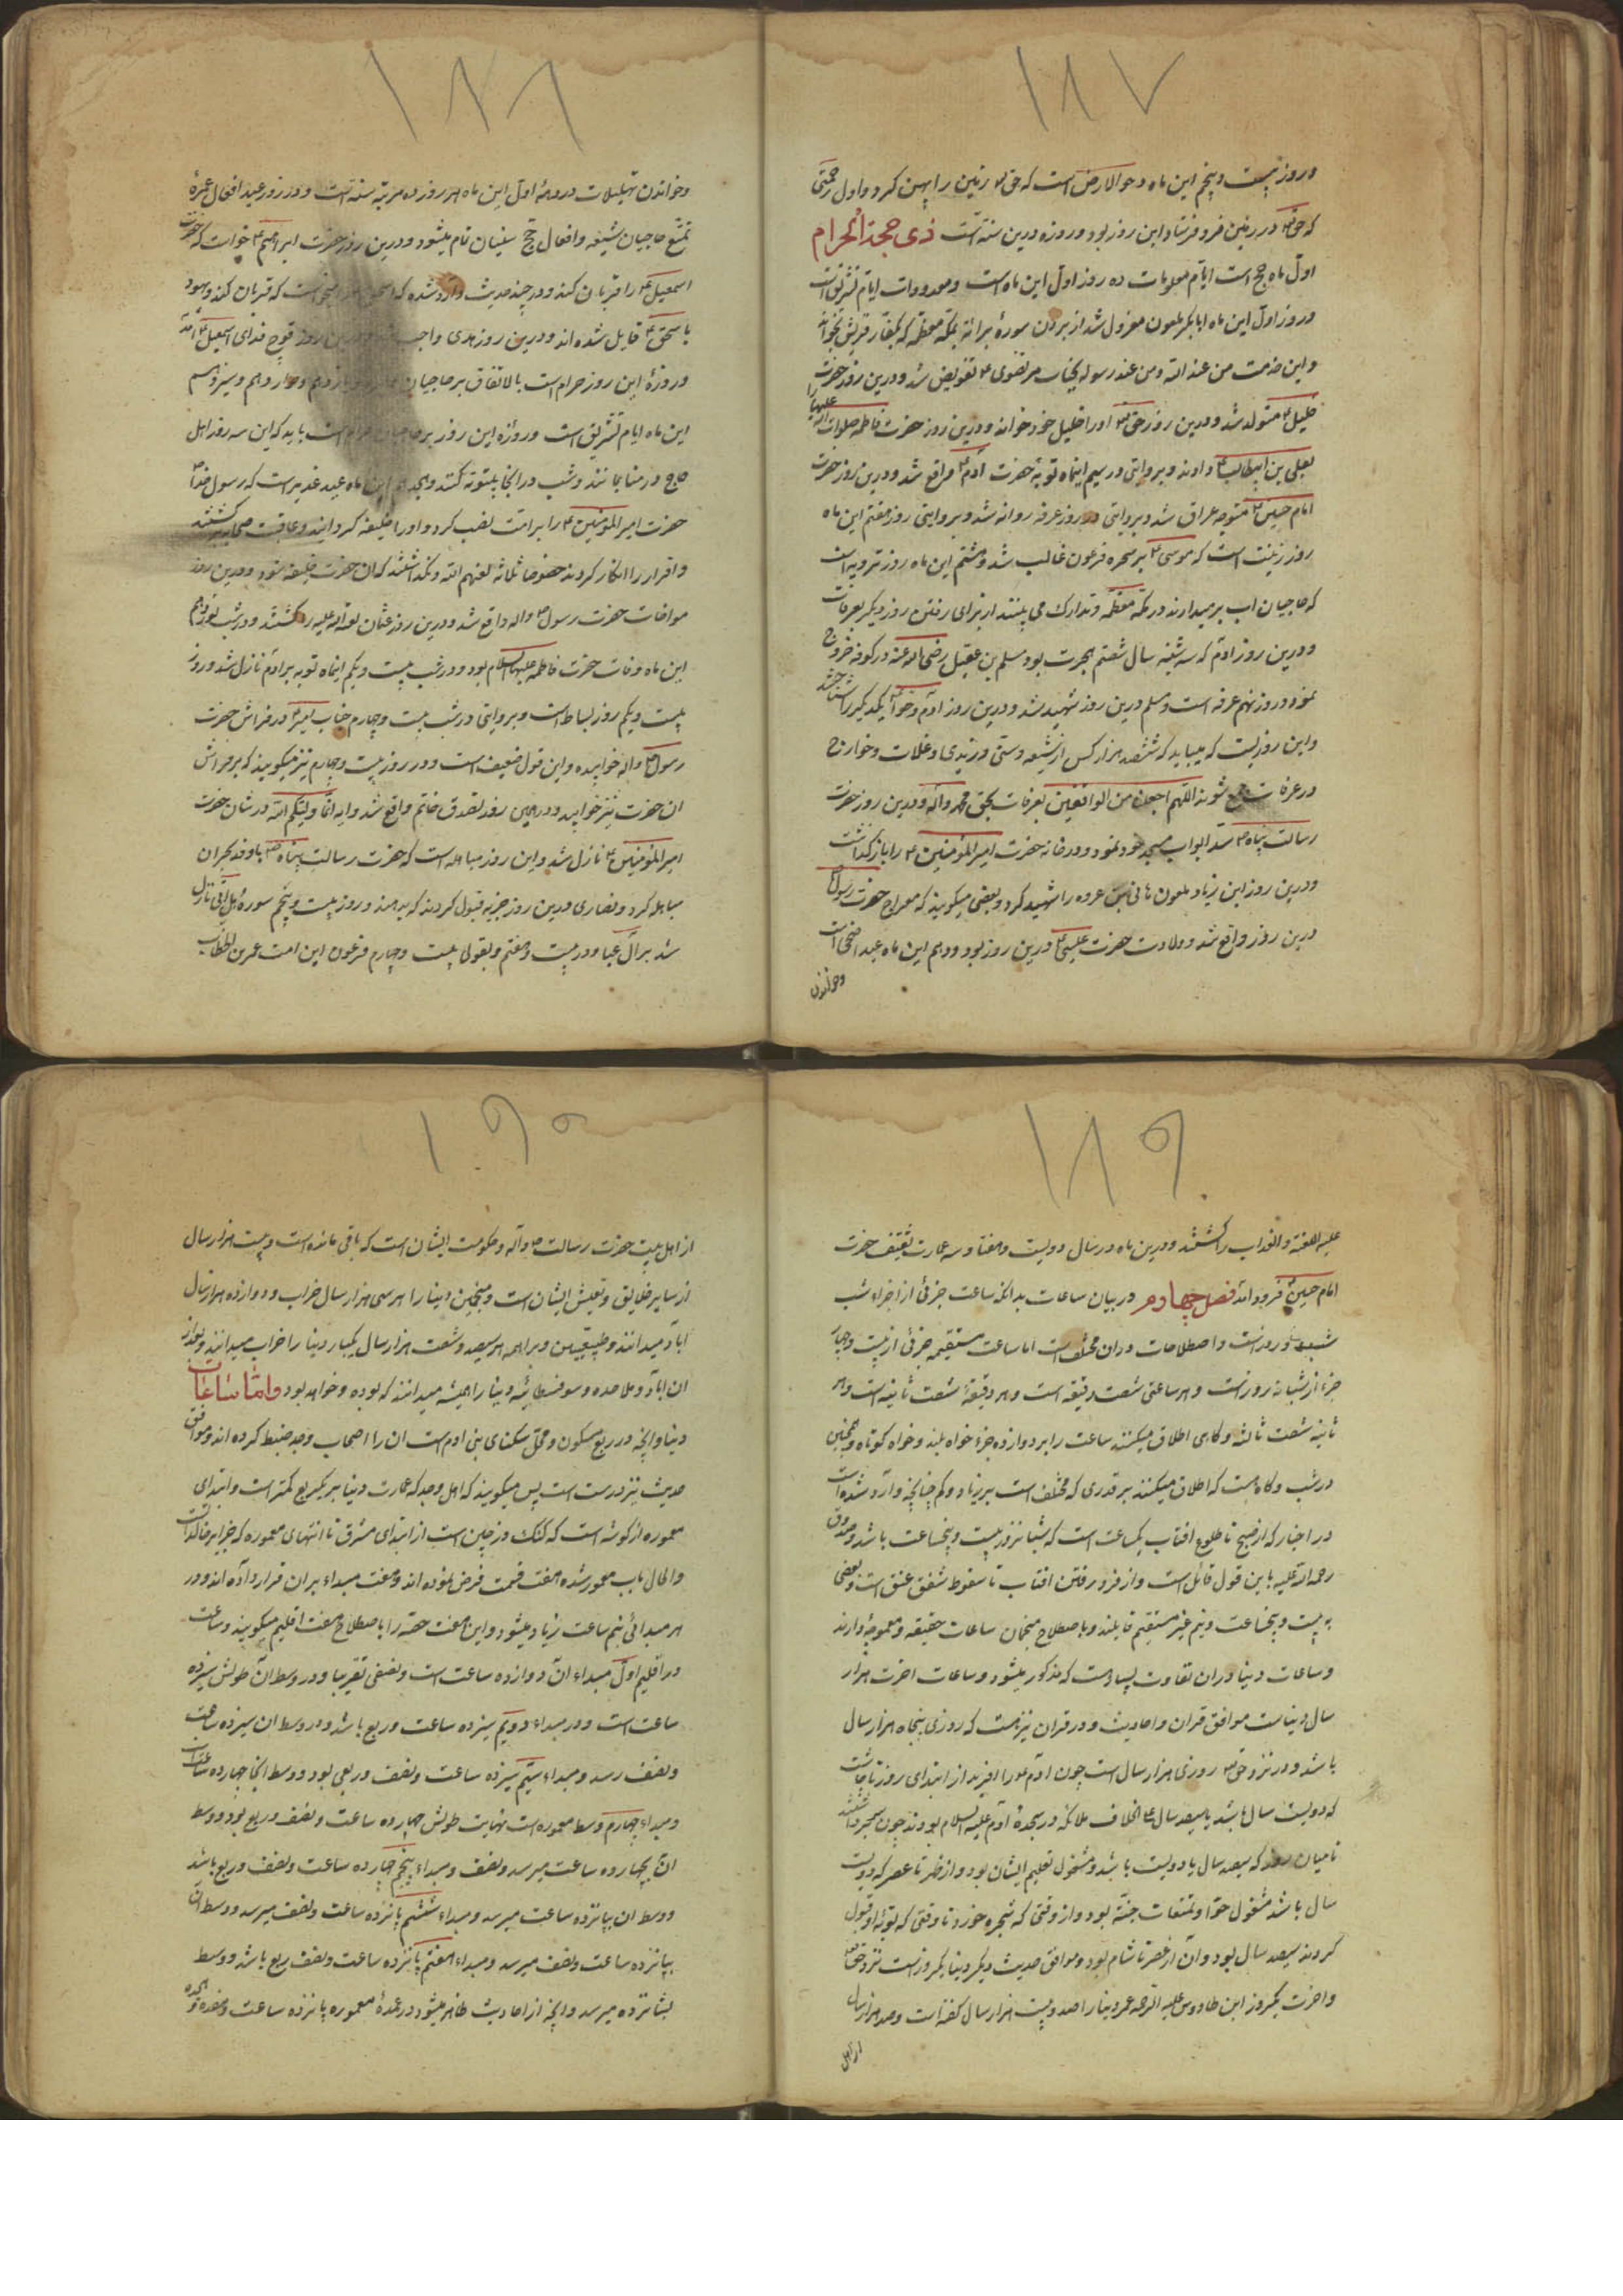 ۱۸۷
و روز بیست و پنجم این ماه دحوالارض است که حق تع زمین را پهن کرد و اول رحمتی
که حق تع در زمین فرو فرستاد این روز بود و روزه درین سنة است ذی حجة الحرام
اول ماه حج است ایام معلومات ده روز اول این ماه است و معدودات ایام تشریق است
و روز اول این ماه ابابکر ملعون معزول شد از بردن سورۀ برائة بمکه معظمه که بکفار قریش بخواند
و این خدمت من عند الله و من عند رسوله بجناب مرتضوی ع تفویض شد و درین روز حضرت
خلیل ع متولد شد و درین روز حق تع او را خلیل خود خواند و درین روز حضرت فاطمه صلوات الله علیها را
بعلی بن ابیطالب ع دادند و بروایتی در سیم اینماه توبۀ حضرت آدم ع واقع شد و درین روز حضرت
امام حسین ع متوجه عراق شد و بروایتی در روز عرفه روانه شد و بروایتی روز هفتم این ماه
روز زینت است که موسی ع بر سحره فرعون غالب شد و هشتم این ماه روز ترویه است
که حاجیان آب برمیدارند در مکه معظمه و تدارک می بینند از برای رفتن روز دیگر بعرفات
و درین روز آدم که سه شنبه سال شصتم هجرت بود مسلم بن عقیل رضی الله عنه در کوفه خروج
نمود و روز نهم عرفه است و مسلم درین روز شهید شد و درین روز آدم و حوا یکدیگر را شناختند
و این روزیست که میباید که ششصد هزار کس از شیعه و سنی و زیدی و غلات و خوارج
در عرفات جمع شوند اللهم اجعلنا من الواقفین بعرفات بحق محمد وآله و درین روز حضرت
رسالت پناه ص سد ابواب مسجد خود نمود و در خانه حضرت امیر المؤمنین ع را باز گذاشت
و درین روز ابن زیاد ملعون هانی بن عروه را شهید کرد و بعضی میگویند که معراج حضرت رسول ص
درین روز واقع شد و ولادت حضرت عیسی ع درین روز بود و دهم این ماه عید اضحی است
و خواندن
۱۸۸
و خواندن تهلیلات در دهۀ اول این ماه هر روز ده مرتبه سنة است و در روز عید افعال عمرۀ
تمتع حاجیان شیعه و افعال حج سنیان تمام میشود و درین روز حضرت ابراهیم ع خواست که حضرت
اسمعیل ع را قربان کند و در چند حدیث وارد شده که است که قربان کند و یهود
باسحق ع قایل شده اند و درین روز هدی واجب درین روز قوچ فدای اسمعیل ع آمد
و روزۀ این روز حرام است بالاتفاق بر حاجیان و یازدهم و دوازدهم و سیزدهم
این ماه ایام تشریق است و روزۀ این روز بر حاجیان حرام است باید که این سه روز اهل
حج در منا بمانند و شب در آنجا بیتوته کنند و هجدهم این ماه عید غدیر است که رسول خدا ص
حضرت امیر المؤمنین ع را بر امت نصب کرد و او را خلیفه گردانید و عاقبت صحابه برگشتند
و اقرار را انکار کردند خصوصا ثلاثه لعنهم الله و نگذاشتند که آن حضرت خلیفه شود و درین روز
مواخات حضرت رسول ص واله واقع شد و درین روز عثمان را کشتند و در شب
این ماه وفات حضرت فاطمه علیها السلام بود و در شب بیست و یکم اینماه توبه بر آدم نازل شد و روز
بیست و یکم روز بساط است و بروایتی در شب بیست و چهارم جناب امیر ع در فراش حضرت
رسول ص واله خوابیده و این قول ضعیف است و در روز بیست و چهارم نیز میگویند که بر فراش
آن حضرت نیز خوابید و در همین روز تصدق خاتم واقع شد و آیه انما ولیکم الله در شان حضرت
امیر المؤمنین ع نازل شد و این روز مباهله است که حضرت رسالت پناه ص با وفد نجران
مباهله کرد و نصاری درین روز جزیه قبول کردند که بدهند و روز بیست و پنجم سورۀ هل اتی نازل
شد بر آل عبا و در بیست و هفتم و بقولی بیست و چهارم فرعون این امت عمر بن الخطاب
۱۸۹
علیه اللعنة والعذاب را کشتند و درین ماه در سال دویست و هفتاد و سه عمارت سقف حضرت
امام حسین ع فرود آمد فصل چهارم در بیان ساعات بدانکه ساعت جزئی از اجزاء شب
و روز است و اصطلاحات در آن مختلف است اما ساعت مستقیمه جزئی از بیست و چهار
جزء از شبانه روز است و هر ساعتی شصت دقیقه است و هر دقیقۀ شصت ثانیه است و هر
ثانیه شصت ثالثه و گاهی اطلاق میکنند ساعت را بر دوازده جزء خواه بلند و خواه کوتاه و همچنین
در شب و گاه هست که اطلاق میکنند بر قدری که مختلف است بر زیاد و کم چنانچه وارد شده است
در اخبار که از صبح تا طلوع آفتاب یکساعت است که شبانروز بیست و پنجساعت باشد و صدوق
رحمه الله علیه باین قول قائل است و از فرو رفتن آفتاب تا سقوط شفق عتق است و بعضی
به بیست و پنجساعت و نیم غیر مستقیم قایلند و باصطلاح منجمان ساعات حقیقیه و معوجه دارند
و ساعات دنیا در آن تفاوت بسیار هست که مذکور میشود و ساعات آخرت هزار
سال دنیاست موافق قرآن و احادیث و در قرآن نیز هست که روزی پنجاه هزار سال
باشد و در نزد حق تع روزی هزار سال است چون آدم ع را آفرید از ابتدای روز تا چاشت
که دویست سال باشد یا سیصد سال ع اخلاف ملائکه در سجدۀ آدم علیه السلام بودند چون سر برداشتند
تا میان روز که سیصد سال یا دویست باشد و مشغول تعلیم ایشان بود و از ظهر تا عصر که دویست
سال باشد مشغول حوا و تمتعات جنة بود و از وقتی که شجره خورد تا وقتی که توبۀ او قبول
کردند سیصد سال بود و آن از عصر تا شام بود و موافق حدیث دیگر دنیا یکروز است نزد حق تع
و آخرت یکروز ابن طاووس علیه الرحمه عمر دنیا را صد و بیست هزار سال گفته است و صد هزار سال
از اهل
۱۹۰
از اهل بیت حضرت رسالت ص وآله و حکومت ایشان است که باقی مانده است و بیست هزار سال
از سایر خلایق و تعیش ایشان است و منجمین دنیا را هر سی هزار سال خراب و دوازده هزار سال
آباد میدانند و طبیعیین و براهمه هر سیصد و شصت هزار سال یکبار دنیا را خراب میدانند و بعد از
آن آباد و ملاحده و سوفسطائیه دنیا را همیشه میدانند که بوده و خواهد بود و اما ساعات
دنیا و آنچه در ربع مسکون و محل سکنای بنی آدم است آن را اصحاب وجه ضبط کرده اند و موافق
حدیث نیز درست است پس میگویند که اهل وجه که عمارت دنیا بر یکربع کمتر است و ابتدای
معموره از گوشه است که کنک دز چین است از ابتدای مشرق تا انتهای معموره که جزایر خالدات
و الحال باب معمور شده هفت قسمت فرض نموده اند و هفت مبداء بر آن قرار داده اند و در
هر مبدائی نیم ساعت زیاد میشود و این هفت حصه را باصطلاح هفت اقلیم میگویند و ساعت
در اقلیم اول مبداء آن دوازده ساعت است و نصفی تقریبا و در وسط آن طولش سیزده
ساعت است و در مبداء دویم سیزده ساعت و ربع باشد و در وسط آن سیزده ساعت
و نصف رسد و مبداء سیم سیزده ساعت و نصف و ربعی بود و وسط آنجا چهارده ساعت است
و مبداء چهارم وسط معموره است نهایت طولش چهارده ساعت و نصف و ربع بود و وسط
آن بچهارده ساعت میرسد و نصف و مبداء پنجم چهارده ساعت و نصف و ربع باشد
و وسط آن بپانزده ساعت میرسد و مبداء ششم پانزده ساعت و نصف میرسد و وسط آن
بپانزده ساعت و نصف میرسد و مبداء هفتم پانزده ساعت و نصف ربع باشد و وسط
بشانزده میرسد و آنچه از احادیث ظاهر میشود در عمدۀ معموره پانزده ساعت و